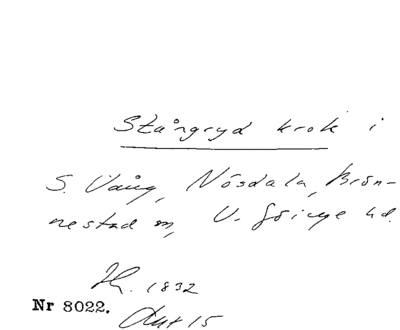 Stångryd krok i
S. Vång, Nösdala, Brön-
nestad sn, V. Göinge hd.
1832
Nr 8022. Akt 15